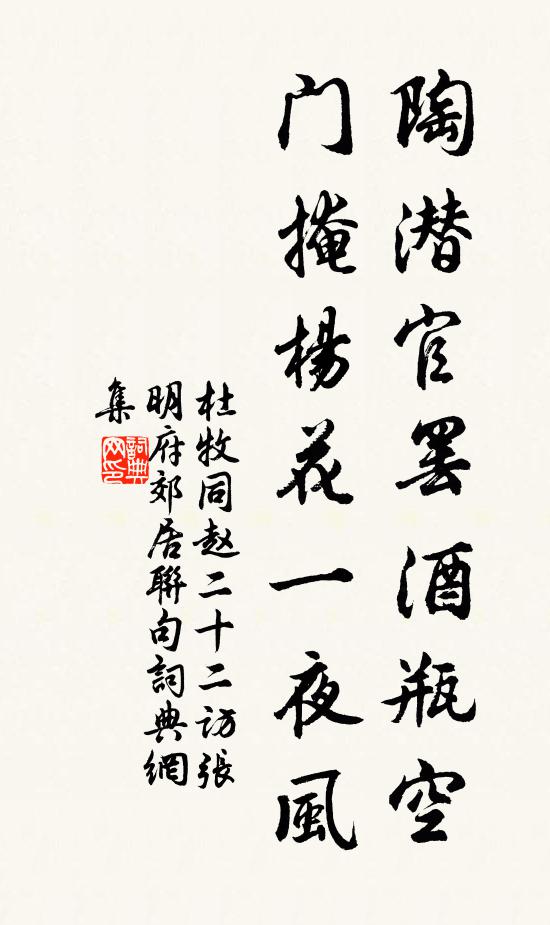 陶潜官罢酒瓶空
门掩楊花一夜風
杜牧同赵二十二访張
明府郊居聯句詞典網
集
詞典
网印